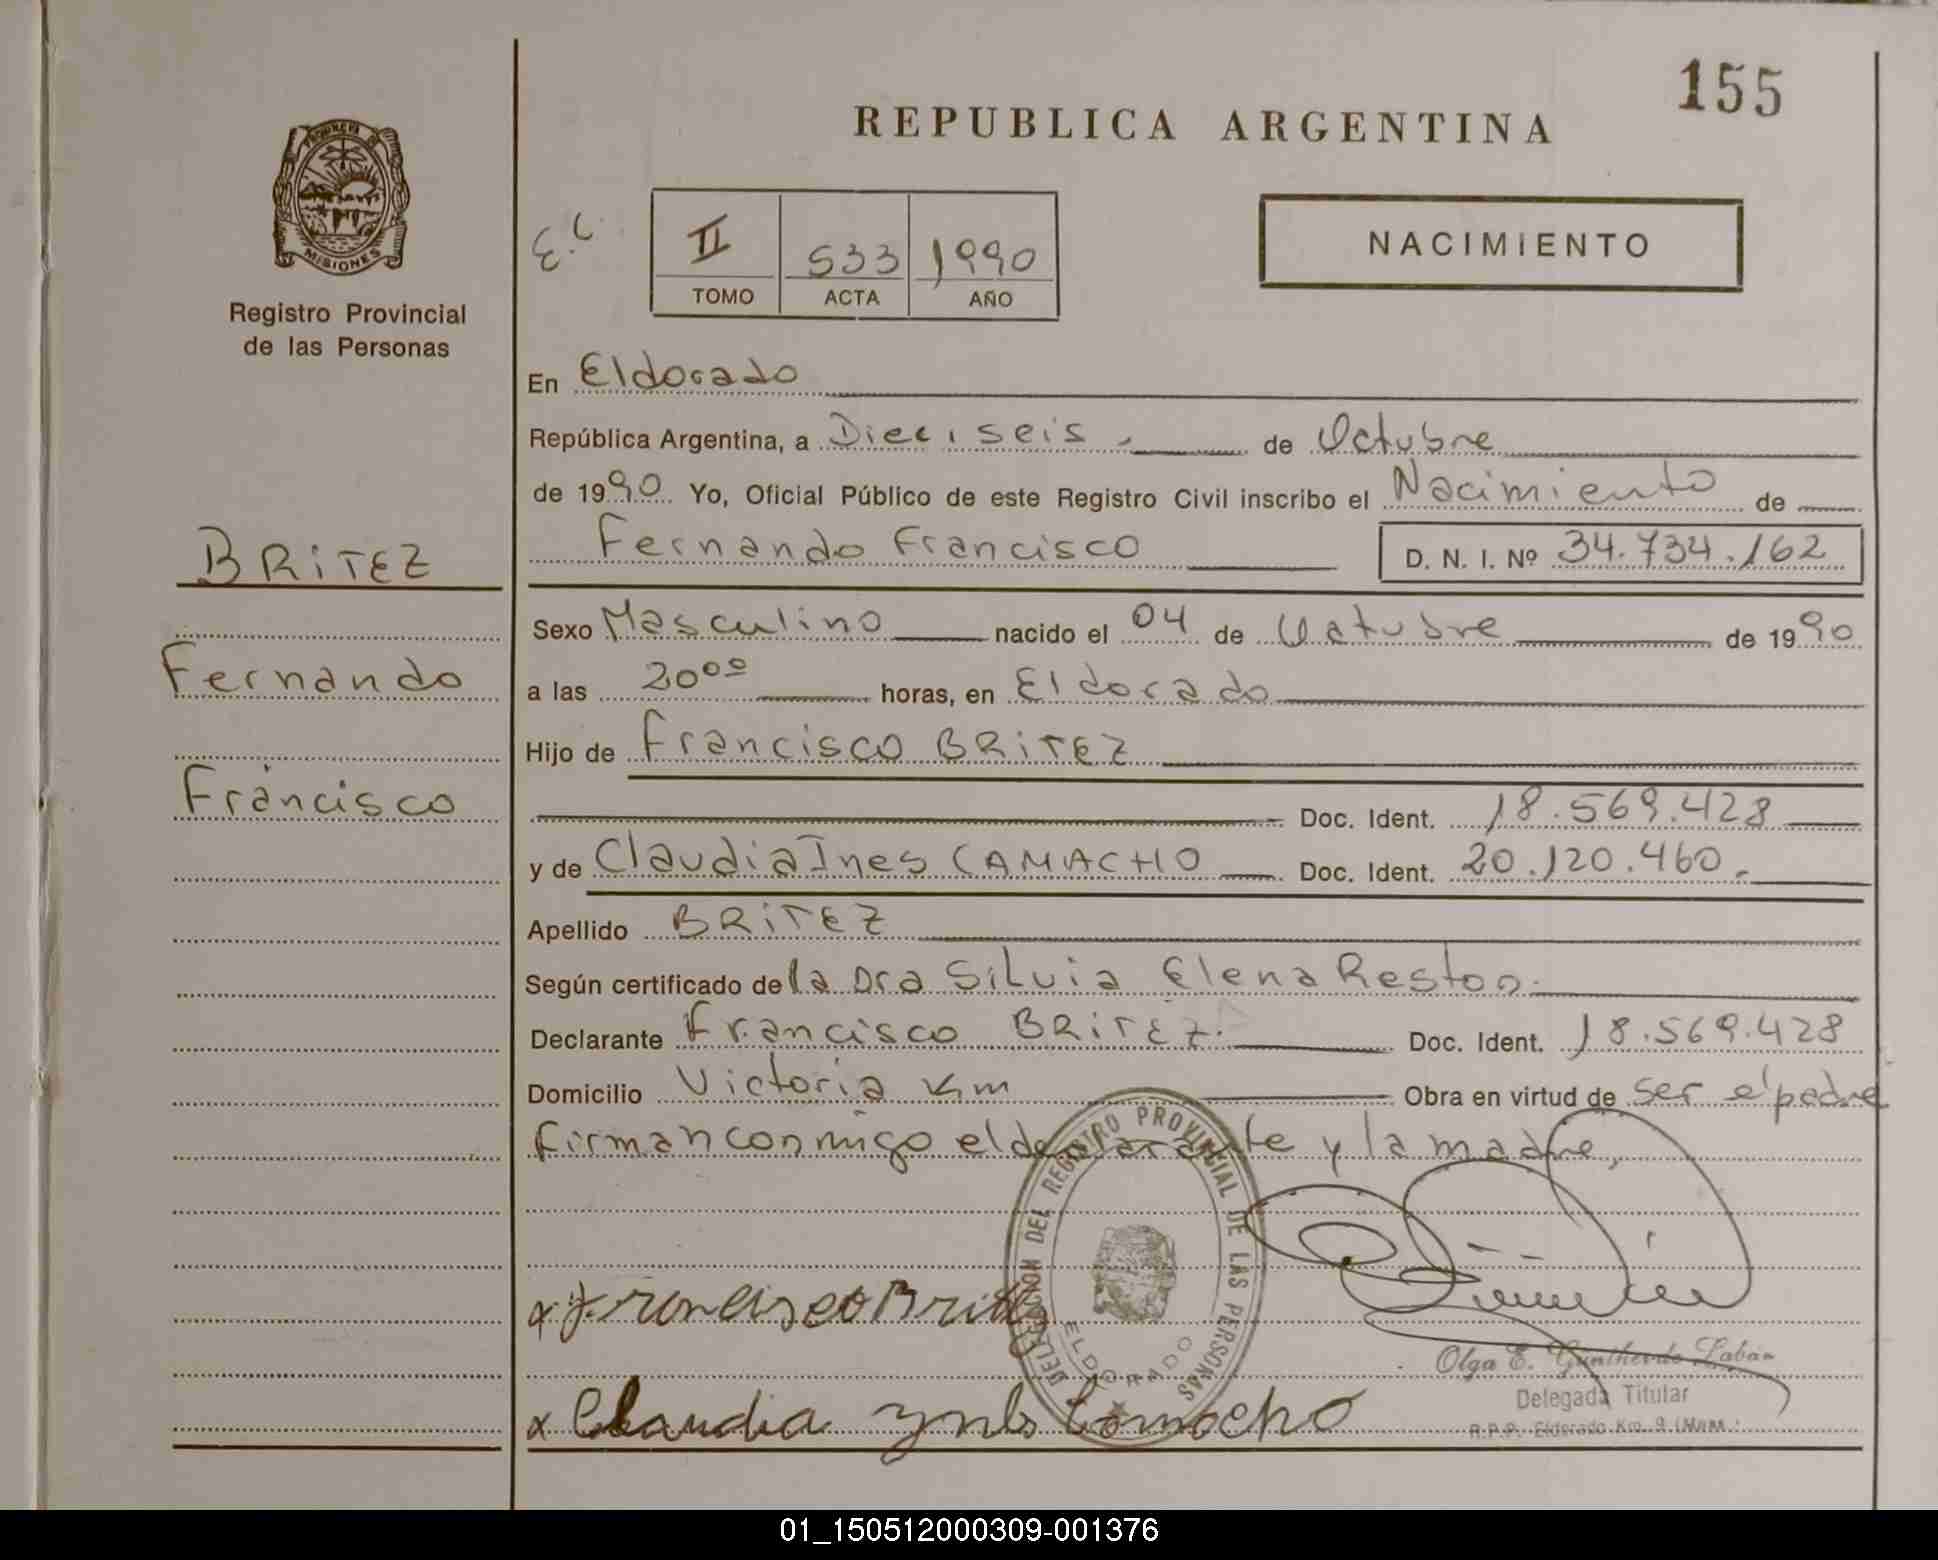 155
REPUBLICA ARGENTINA
PROVINCIA DE
MISIONES
Registro Provincial
de las Personas
E.C.
II 533 1990
TOMO ACTA AÑO
NACIMIENTO
En Eldorado
República Argentina, a Dieciseis.- de Octubre
de 1990 Yo, Oficial Público de este Registro Civil inscribo el Nacimiento de
Fernando Francisco D. N. I. Nº 34.734.162
BRITEZ
Fernando
Francisco
Sexo Masculino nacido el 04 de Octubre de 1990
a las 20ºº horas, en Eldorado
Hijo de Francisco BRITEZ
Doc. Ident. 18.569.428
y de Claudia Ines CAMACHO Doc. Ident. 20.120.460.-
Apellido BRITEZ
Según certificado de la Dra Silvia Elena Reston.
Declarante Francisco BRITEZ. Doc. Ident. 18.569.428
Domicilio Victoria Km Obra en virtud de ser el padre
firman conmigo el declarante y la madre,
DELEGACION DEL REGISTRO PROVINCIAL DE LAS PERSONAS
ELDORADO
x Francisco Britez
Olga E. Gunther de Labán
Delegada Titular
R.P.P. Eldorado Km. 9
x Claudia Ynes Camacho
01_150512000309-001376